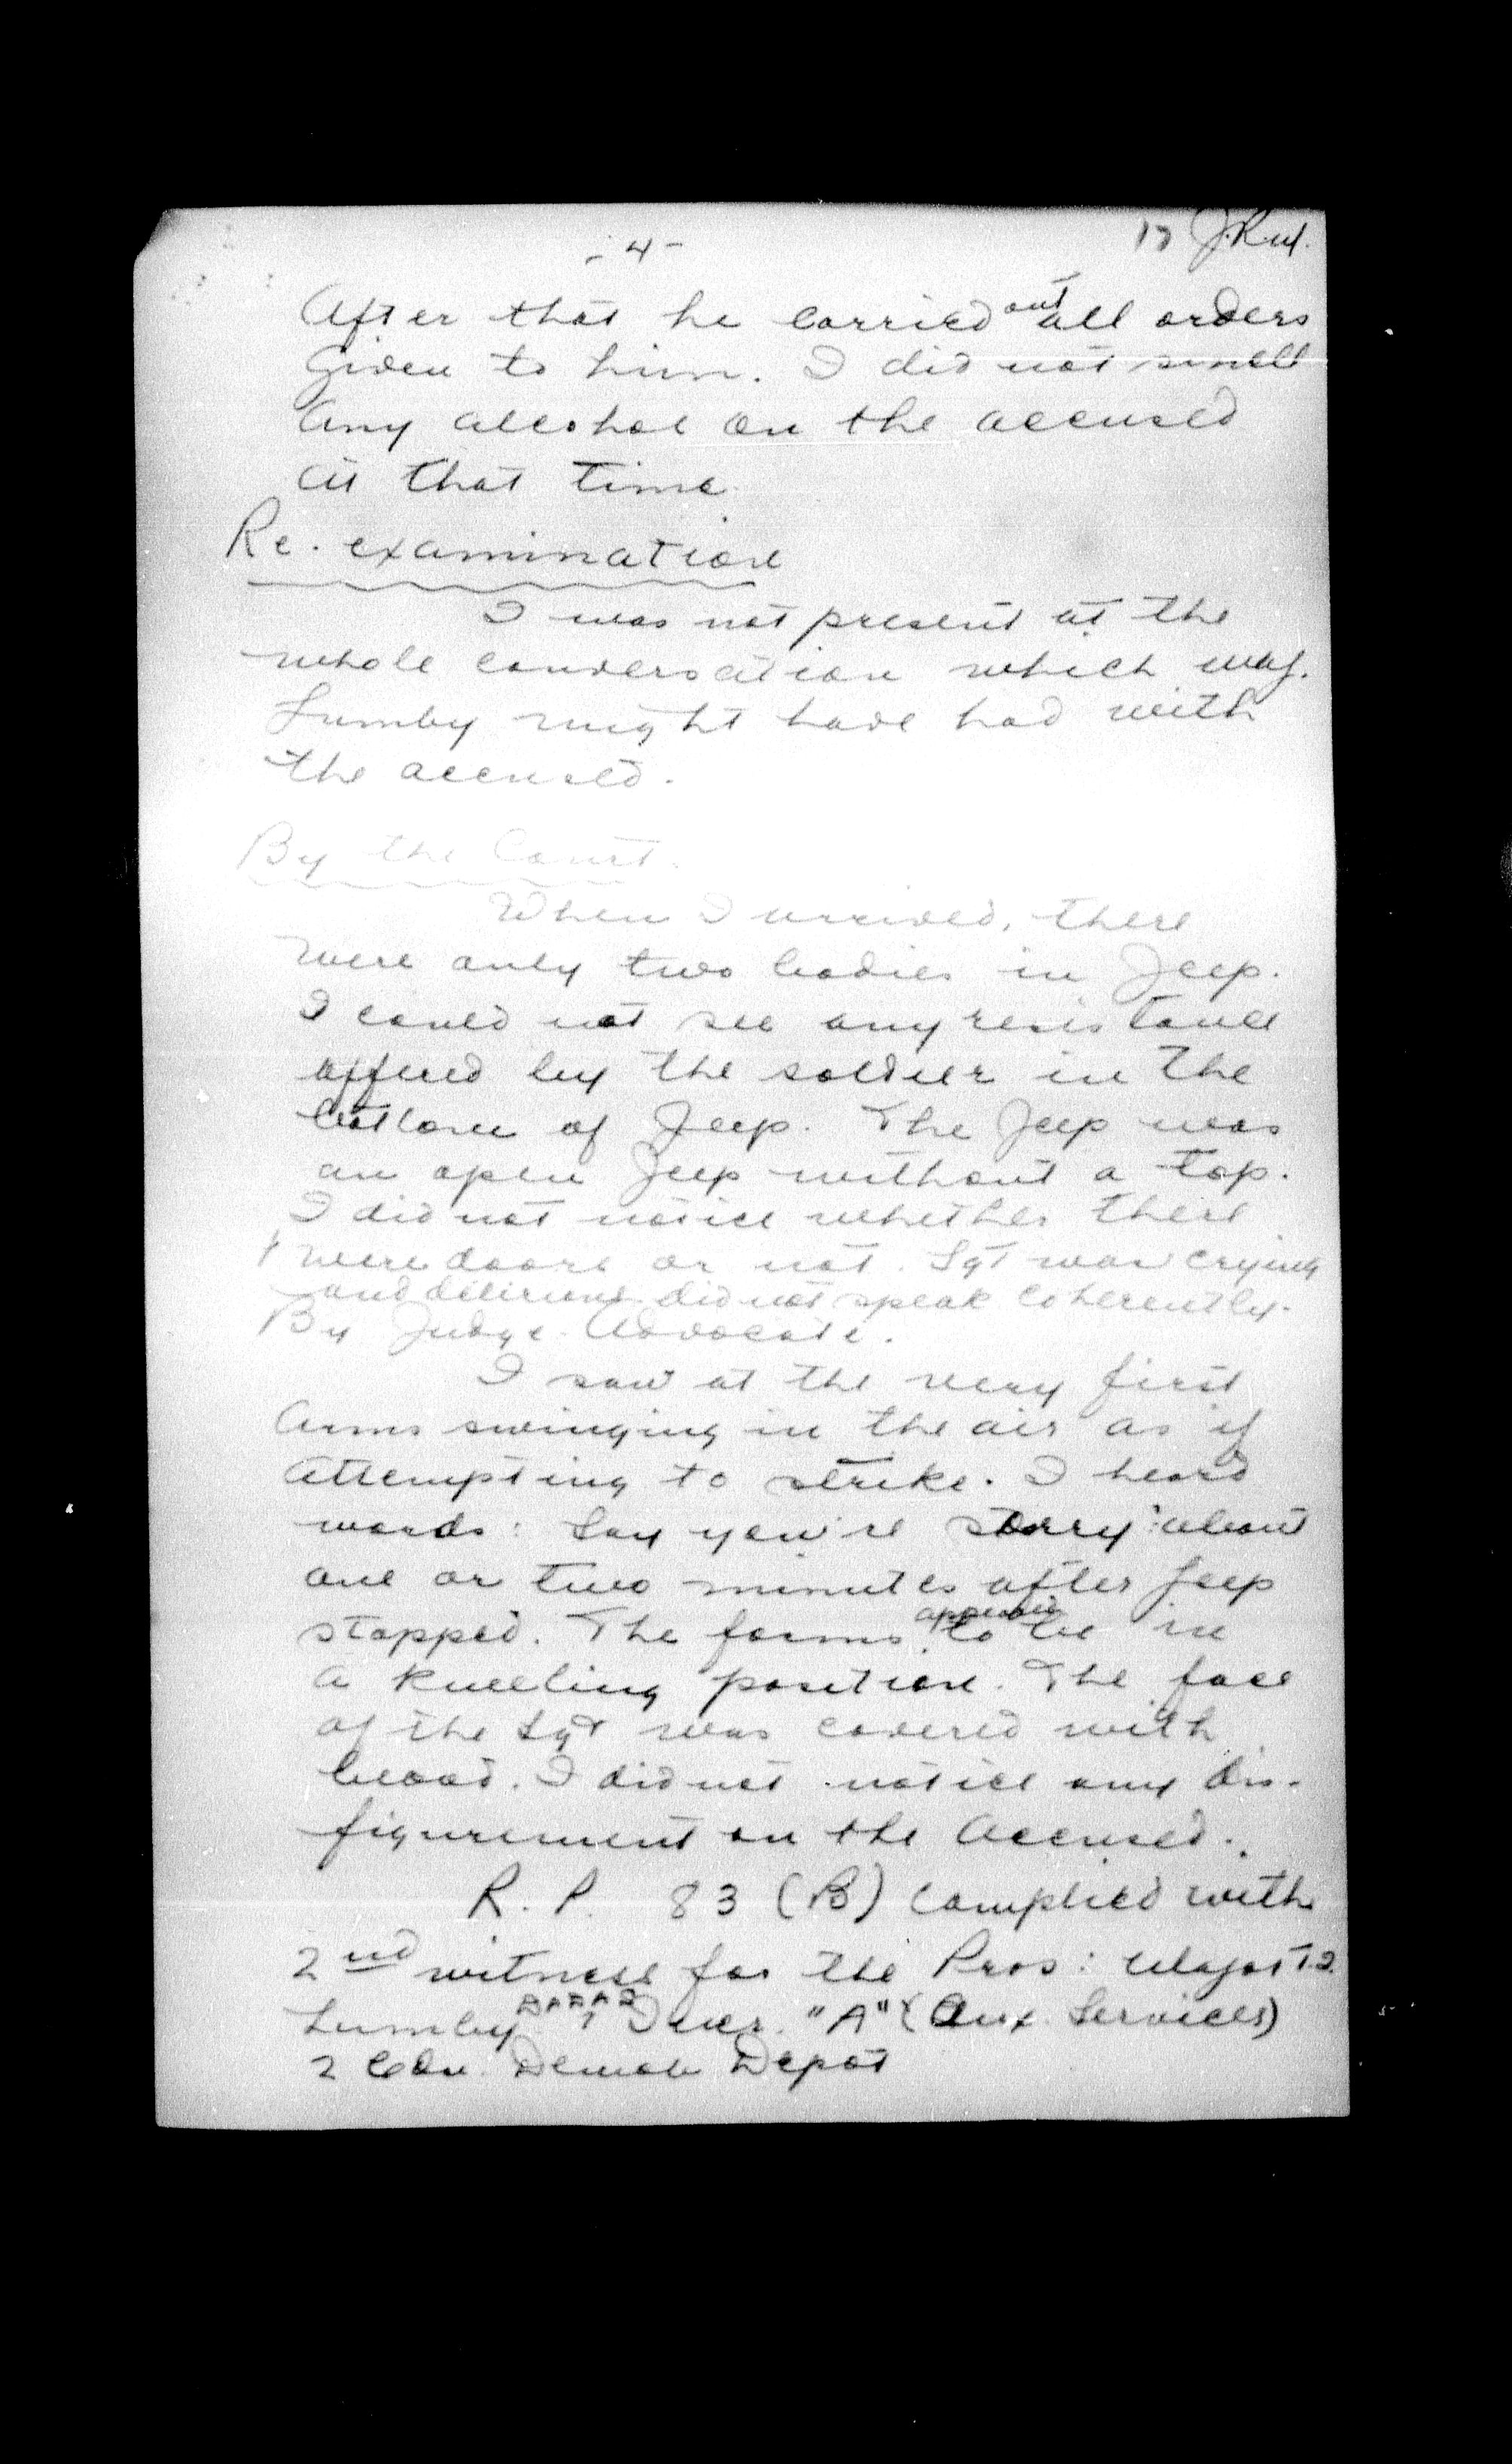 - 4 -
17
After that he carried out all orders
given to him. I did not smell
any alcohol on the accused
at that time.
Re. examination
I was not present at the
whole conversation which Maj.
Lumby might have had with
the accused.
By the Court.
When I arrived, there
were only two bodies in Jeep.
I could not see any resistance
offered by the soldier in the
bottom of Jeep. The Jeep was
an open Jeep without a top.
I did not notice whether there
were doors or not. Sgt was crying
and delirious did not speak coherently.
By Judge. Advocate.
I saw at the very first
Arms swinging in the air as if
attempting to strike. I heard
words: "Say you're sorry" about
one or two minutes after Jeep
stopped. The forms appeared to be in
a kneeling position. The face
of the Sgt was covered with
blood. I did not notice any dis-
figurement on the Accused.
R. P. 83 (B) Complied with
2nd witness for the Pros: Major
Lumby "A" (Aux. Services)
2 Cdn. Demob Depot